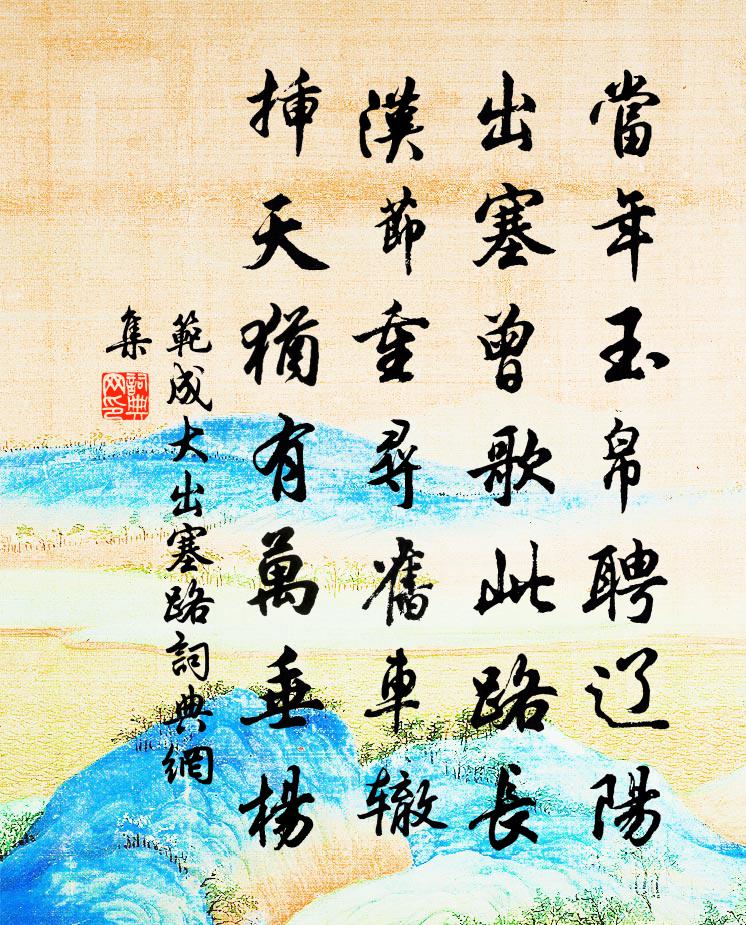 當年玉帛聘辽陽
出塞曾歌此路長
漢節重尋舊車辙
揷天猶有萬垂楊
範成大出塞路詞典網
集
詞典
网印